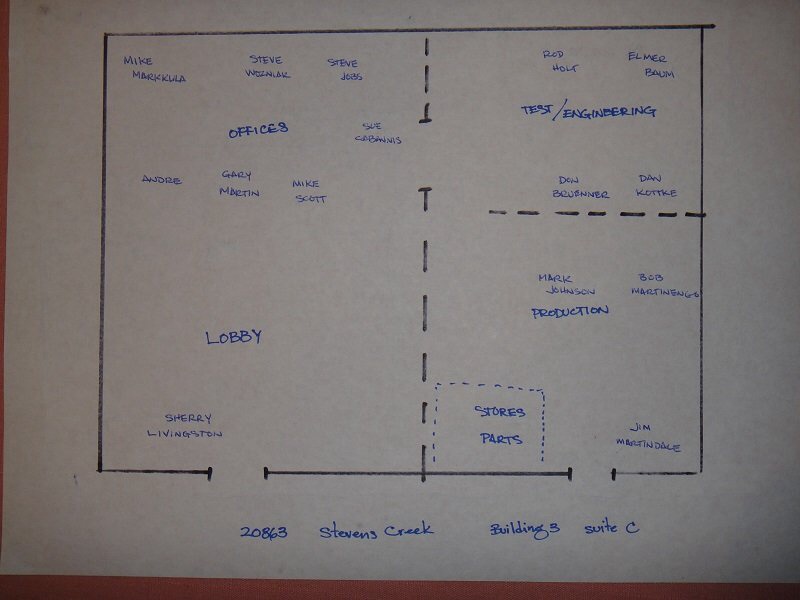 MIKE
MARKKULA
STEVE
WOZNIAK
STEVE
JOBS
ROD
HOLT
ELMER
BAUM
OFFICES
SUE
CABANNIS
TEST/ENGINBERING
ANDRE
GARY
MARTIN
MIKE
SCOTT
DON
BRUENNER
DAN
KOTTKE
MARK
JOHNSON
BOB
MARTINENGO
PRODUCTION
LOBBY
SHERRY
LIVINGSTON
STORES
PARTS
JIM
MARTINDALE
20863 Stevens Creek Building 3 suite C